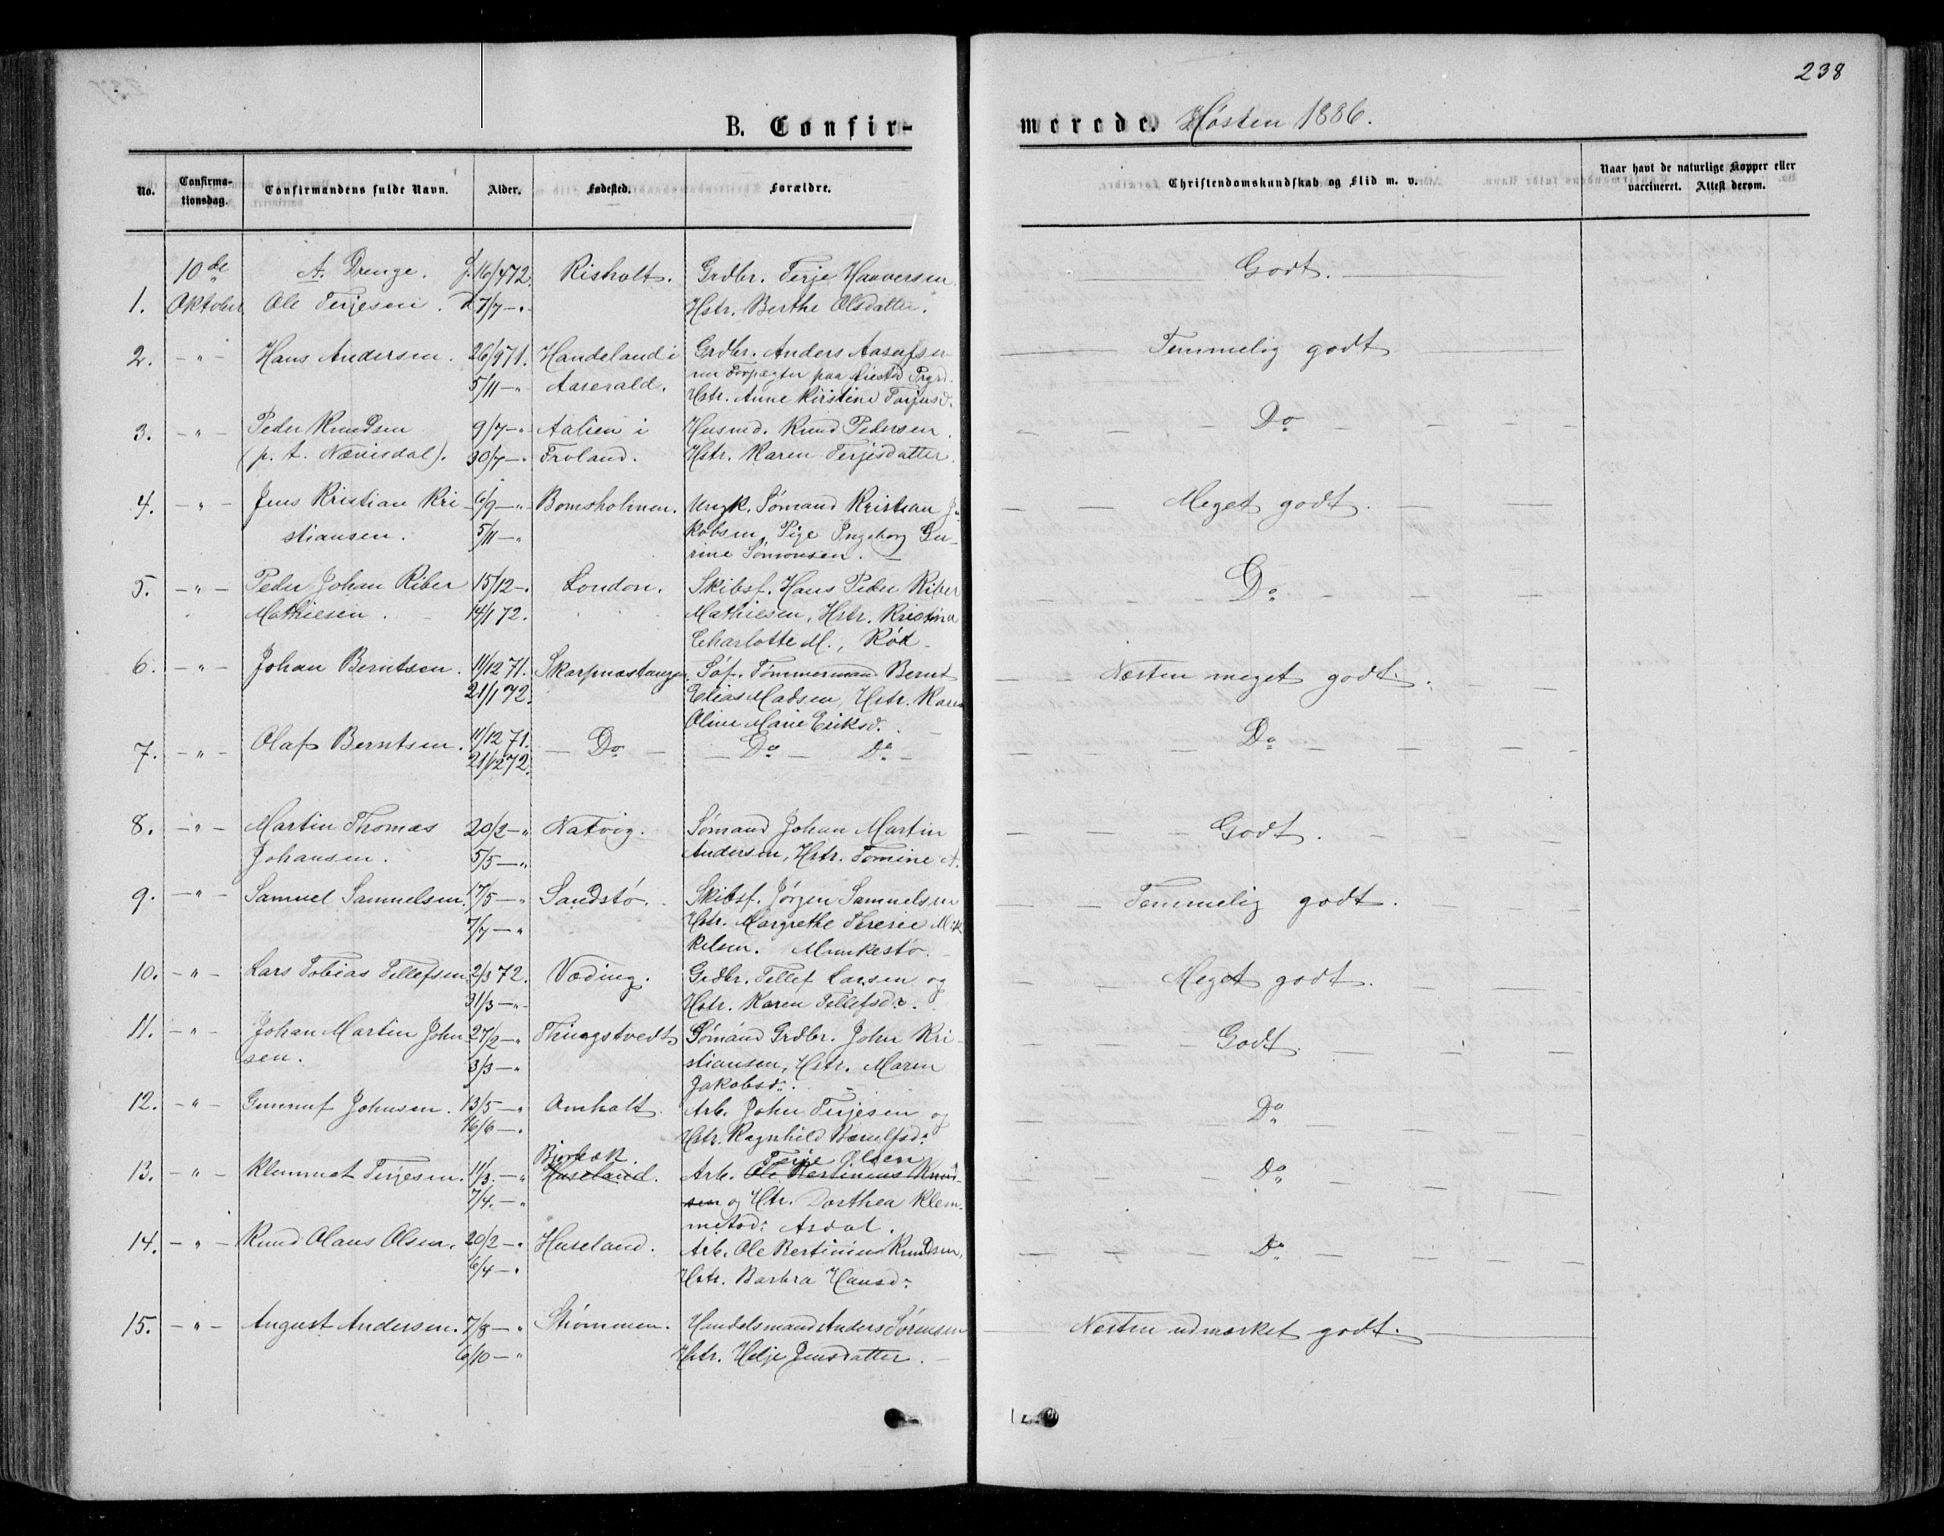 238
B. Confir-
merede. Høsten 1886.
No.
Confirma-
tionsdag.
Confirmandens fulde Navn.
Alder.
Fødested.
Forældre.
Christendomskundskab og Flid m. v.
Naar havt de naturlige Kopper eller
vaccineret. Attest derom.
10de A. Drenge. f. 16/4 72. Risholt. Grdbr. Terje Haaversen Godt.
1. Oktober Ole Terjesen. d. 7/7 — " Hstr. Berthe Olsdatter.
2. — " — Hans Andersen. 26/9 71. Handeland i Grdbr. Anders Aasulfse- Temmelig godt
5/11 — " Aaserald. Forpagter paa
Hstr. Anne Kirstine Torjusd.
3. — " — Peder Knudsen 9/7 — " Aalien i Husmd. Knud Pedersen. Do
(p. t. Nævisdal). 30/7 — " Froland. Hstr. Karen Terjesdatter.
4. — " — Jens Kristian Kri- 6/9 — " Bomsholmen. Ungk. Sømand Kristian Ja- Meget godt.
stiansen. 5/11 — " kobsen, Pige Ingeborg Gu-
rine Simonsen.
5. — " — Peder Johan Riber 15/12 — " London. Skibsf. Hans Peder Riber Do
Mathiesen. 14/1 72. Mathiesen, Hstr. Kristina
Charlotte M., Rød.
6. — " — Johan Berntsen. 11/12 71. Skarpnæstangen. Tømmermand Bernt Næsten meget godt.
21/1 72. Elias Madsen, Hstr. Karen
Oline Marie Eriksd.
7. — " — Olaf Berntsen. 11/12 71. — Do — — Do — Do — Do
21/1 72.
8. — " — Martin Thomas 20/2 — " Natvig. Sømand Johan Martin Godt.
Johansen. 5/5 — " Andersen, Hstr. Tomine A.
9. — " — Samuel Samuelsen. 17/5 — " Sandstø. Skibsf. Jørgen Samuelsen Temmelig godt.
7/7 — " Hstr. Margrethe Terese Mik-
kelsen. Munkestø.
10. — " — Lars Tobias Tellefsen 2/3 72. Væding. Grdbr. Tellef Larsen og Meget godt.
31/3 — " Hstr. Karen Tellefsd.
11. — " — Johan Martin John- 27/2 — " Thingstvedt Sømand Grdbr. John Kri- Godt.
sen. 3/3 — " stiansen, Hstr. Maren
Jakobsd.
12. — " — Gunnuf Johnsen. 13/5 — " Omholt. Arb. John Terjesen og Do
16/6 — " Hstr. Ragnhild
Bjorbæk. Terje Olsen
13. — " — Klemmet Terjesen. 11/3 — " Huseland. Arb. Ole Bertinius Knud- Do
7/4. — " sen og Hstr. Dorthea Klem-
metsd: Asdal.
14. — " — Knud Olaus Olsen. 20/2 — " Huseland. Arb. Ole Bertinius Knudsen, Do
6/4 — " Hstr. Barbra Hansd:
15. — " — August Andersen. 7/8 — " Strømmen. Handelsmand Anders Sørensen Næsten udmærket godt.
6/10 — " Hstr. Helje Jensdatter.